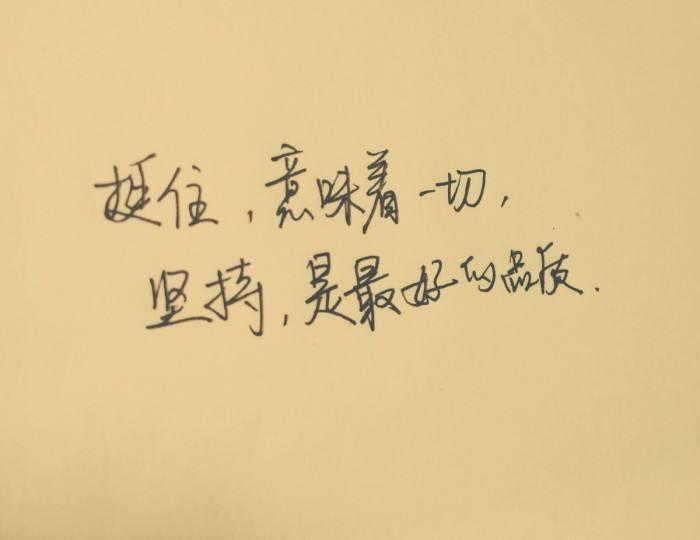 挺住，意味着一切，
坚持，是最好的品质.